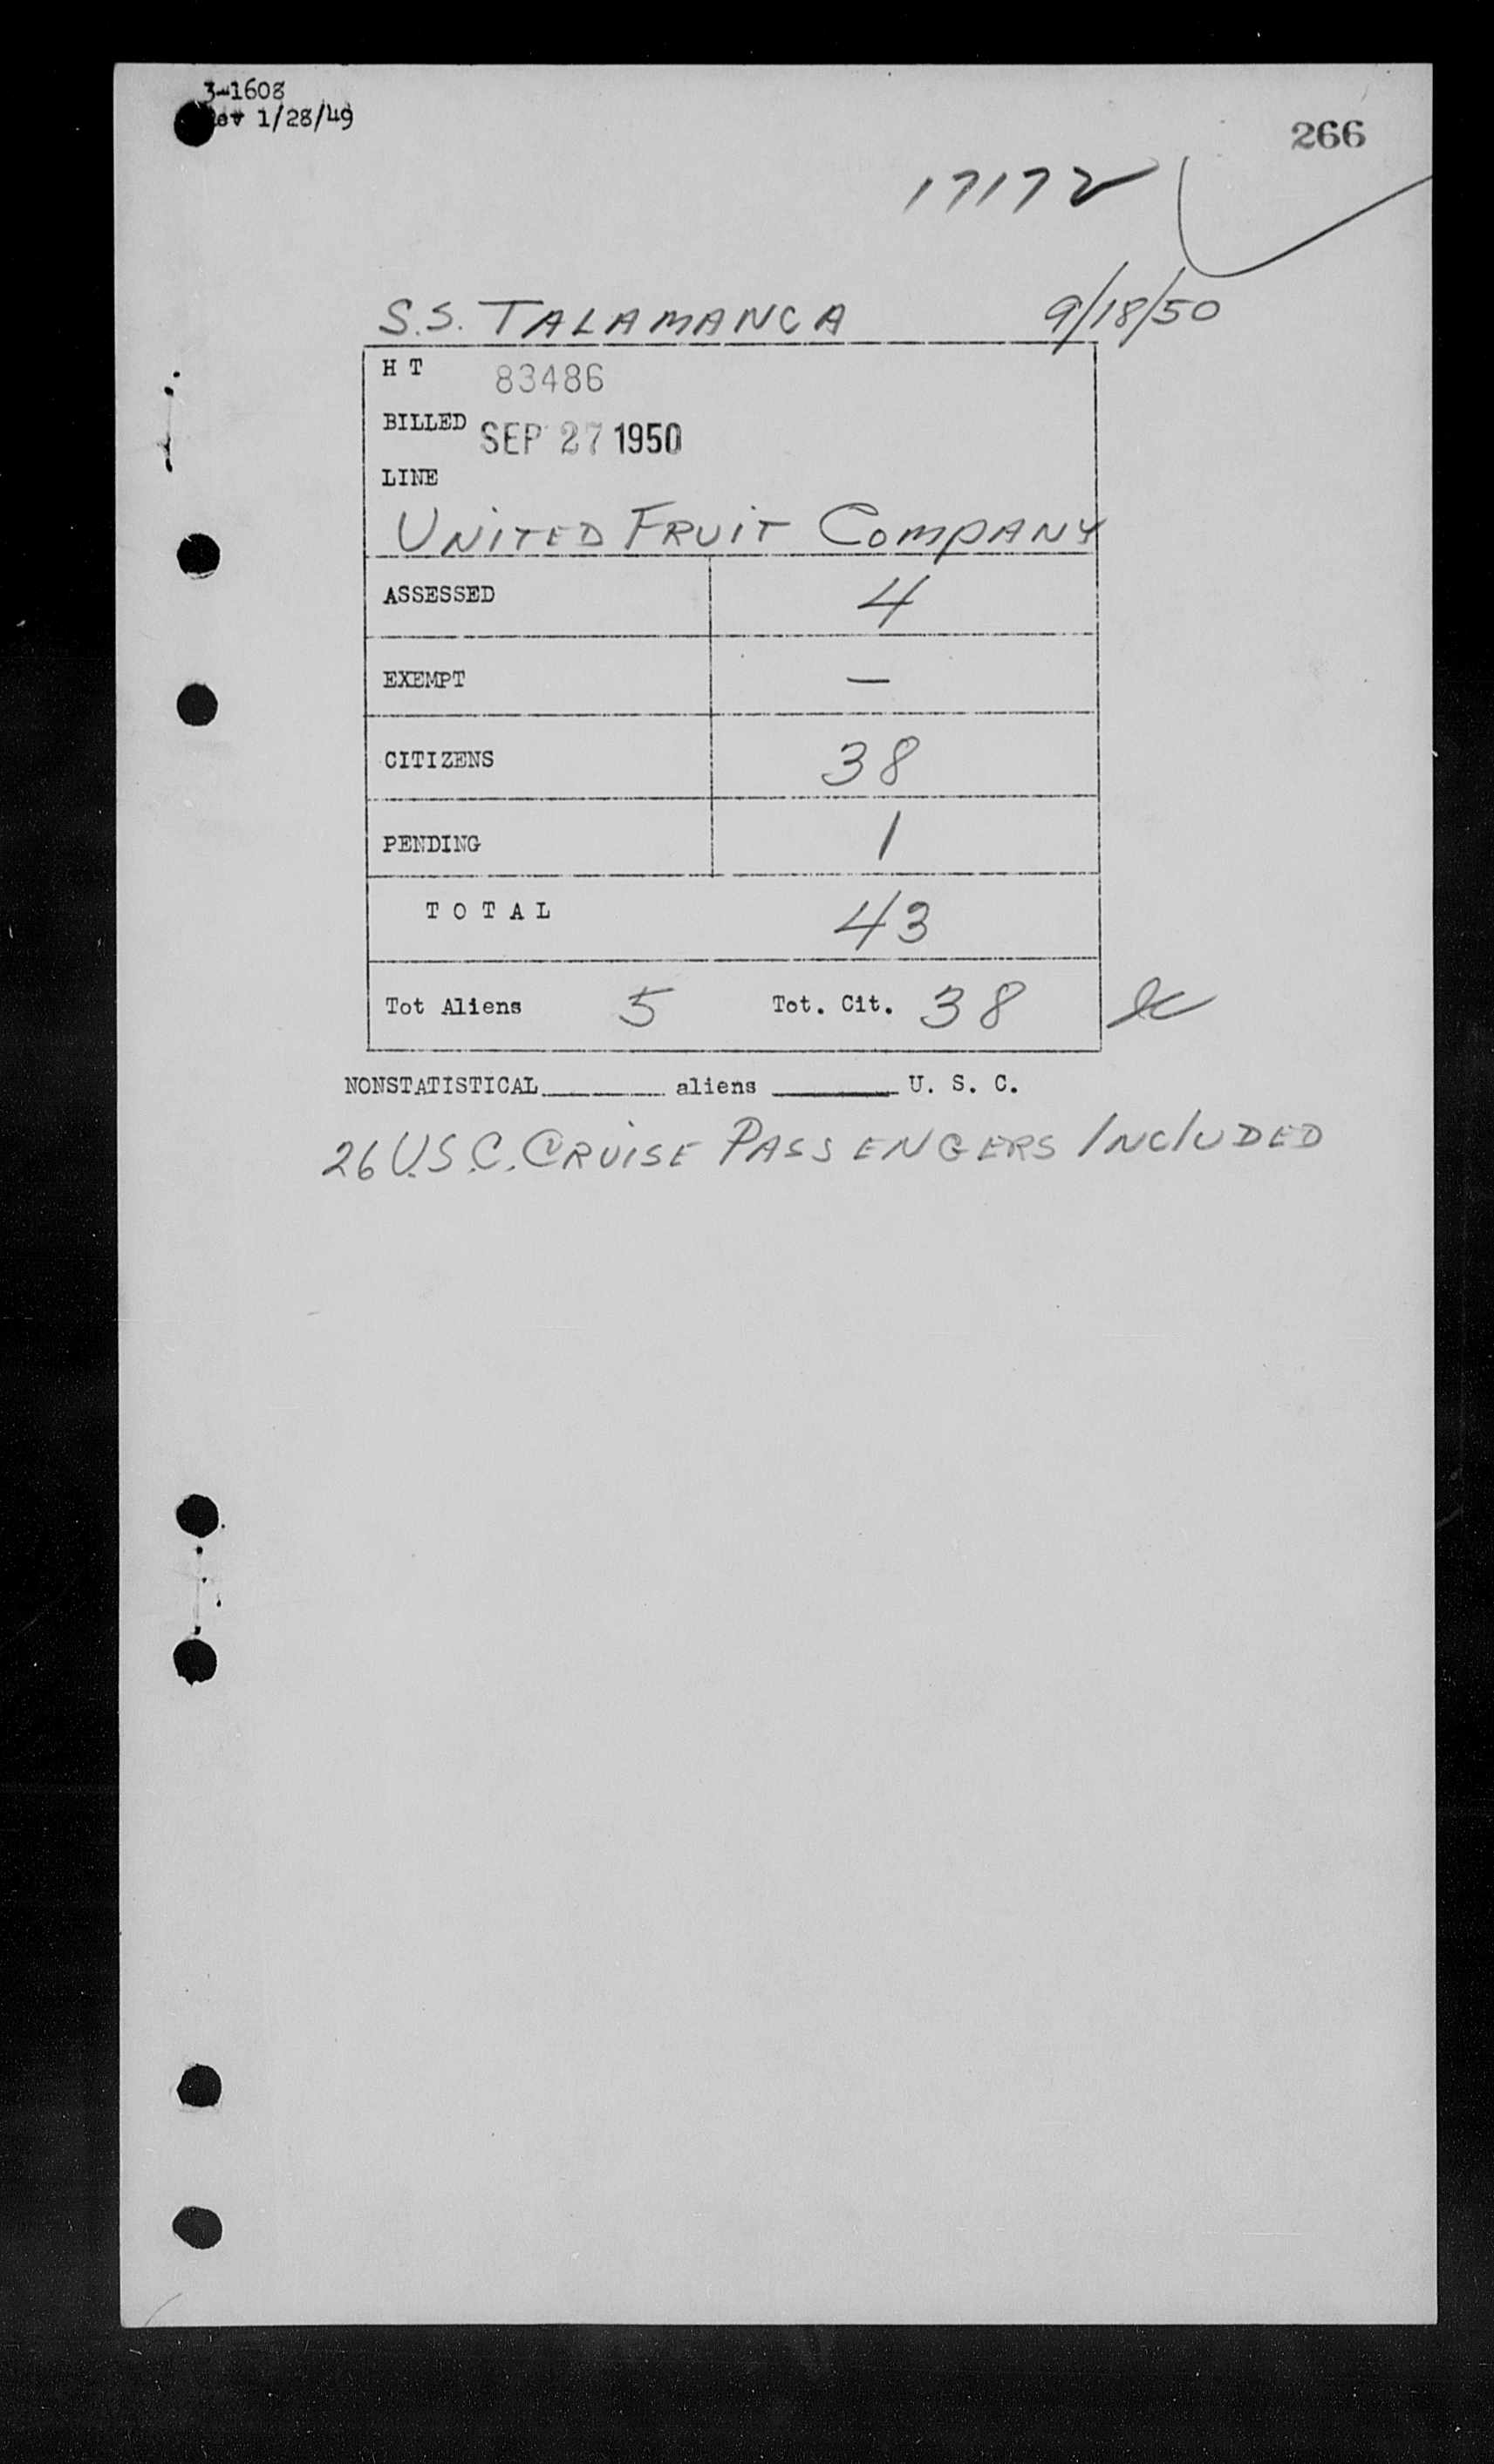 3-1608
Rev 1/28/49
266
17172
S.S. TALAMANCA 9/18/50
H T 83486
BILLED SEP 27 1950
LINE
UNITED FRUIT COMPANY
ASSESSED 4
EXEMPT —
CITIZENS 38
PENDING 1
T O T A L 43
Tot Aliens 5 Tot. Cit. 38
NONSTATISTICAL________ aliens ________ U. S. C.
26 U.S.C. CRUISE PASSENGERS INCLUDED